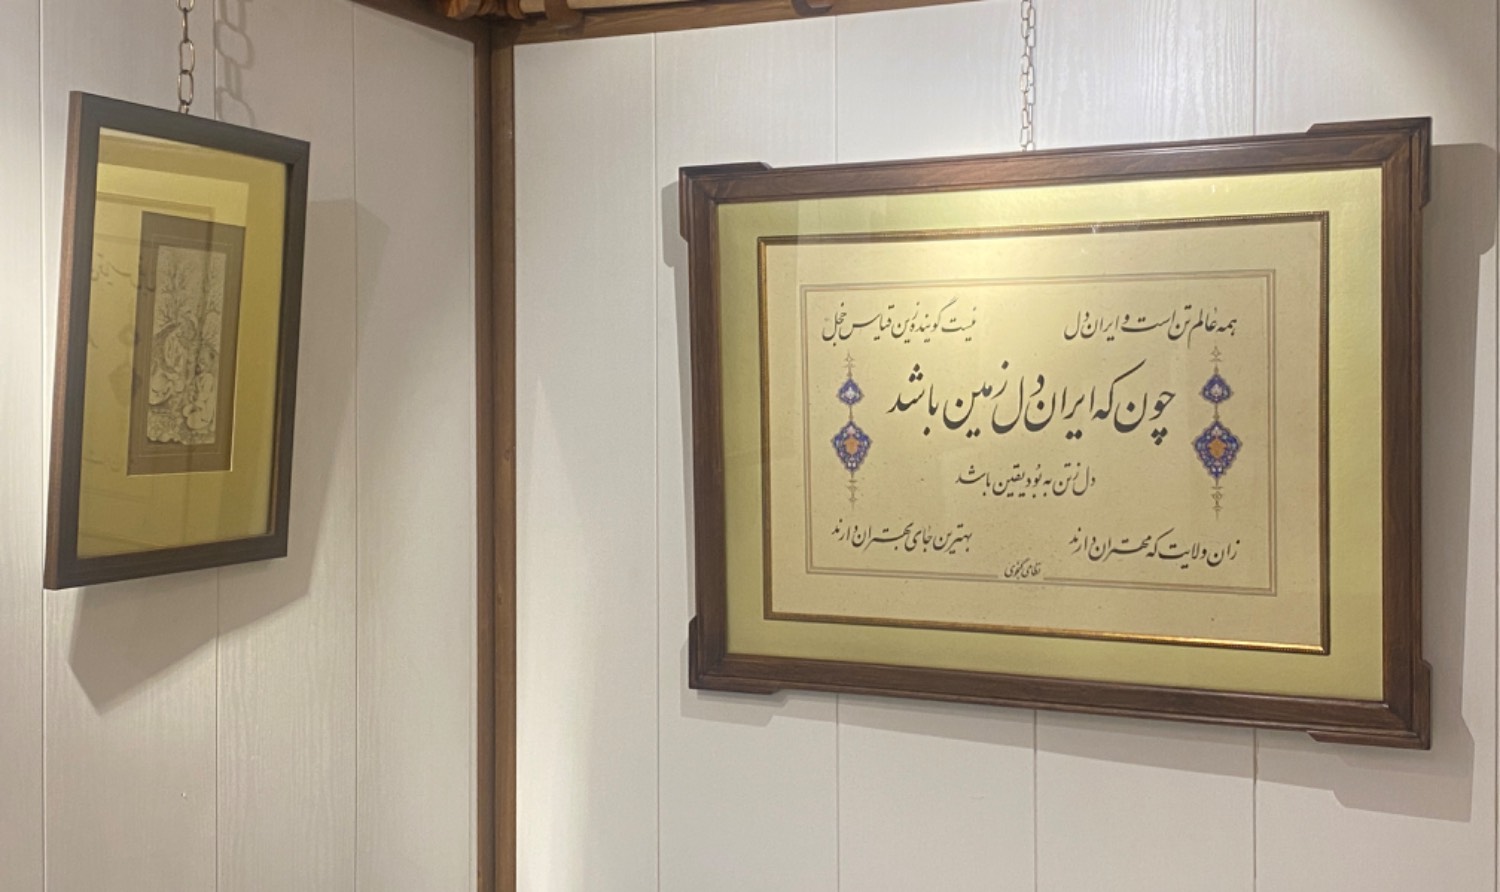 همه عالم تن است و ایران دل نیست گوینده زین قیاس خجل
چون که ایران دل زمین باشد
دل ز تن به بُوَد یقین باشد
زان ولایت که مهتران دارند بهترین جای بهتران دارند
نظامی گنجوی